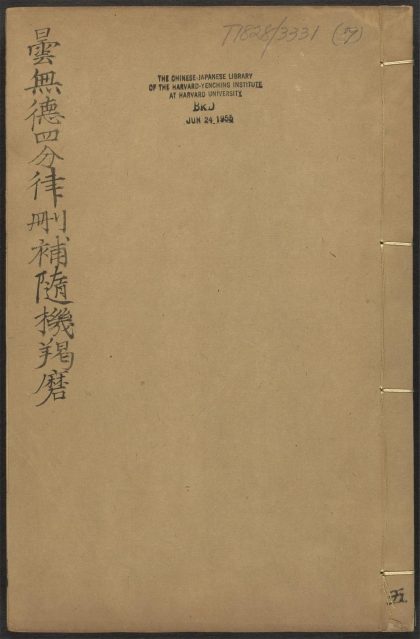 T1828/3331 (59)
THE CHINESE-JAPANESE LIBRARY
OF THE HARVARD-YENCHING INSTITUTE
AT HARVARD UNIVERSITY
JUN 24 1955
曇無德四分律刪補隨機羯磨
五